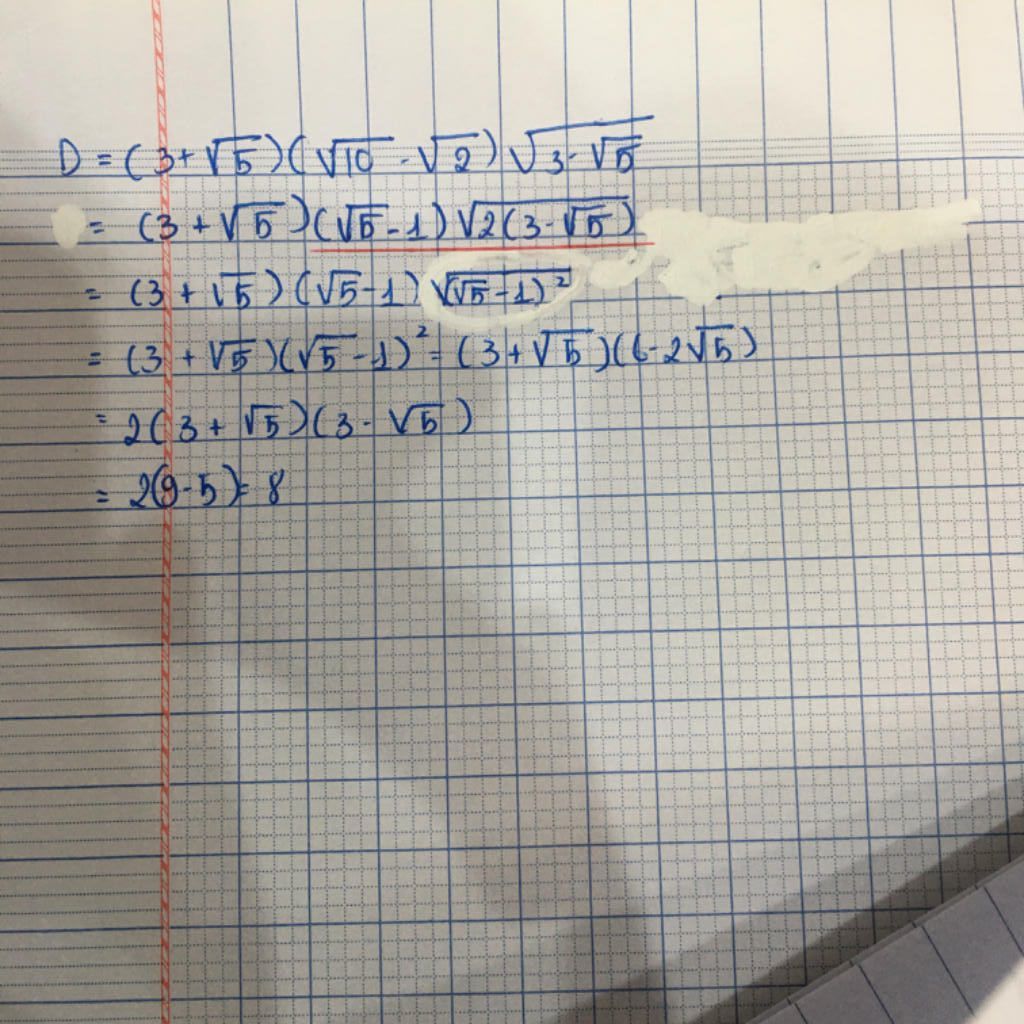 D = (3 + √5)(√10 - √2)√(3 - √5)
= (3 + √5)(√5 - 1)√(2(3 - √5))
= (3 + √5)(√5 - 1)√((√5 - 1)²)
= (3 + √5)(√5 - 1)² = (3 + √5)(6 - 2√5)
= 2(3 + √5)(3 - √5)
= 2(9 - 5) = 8